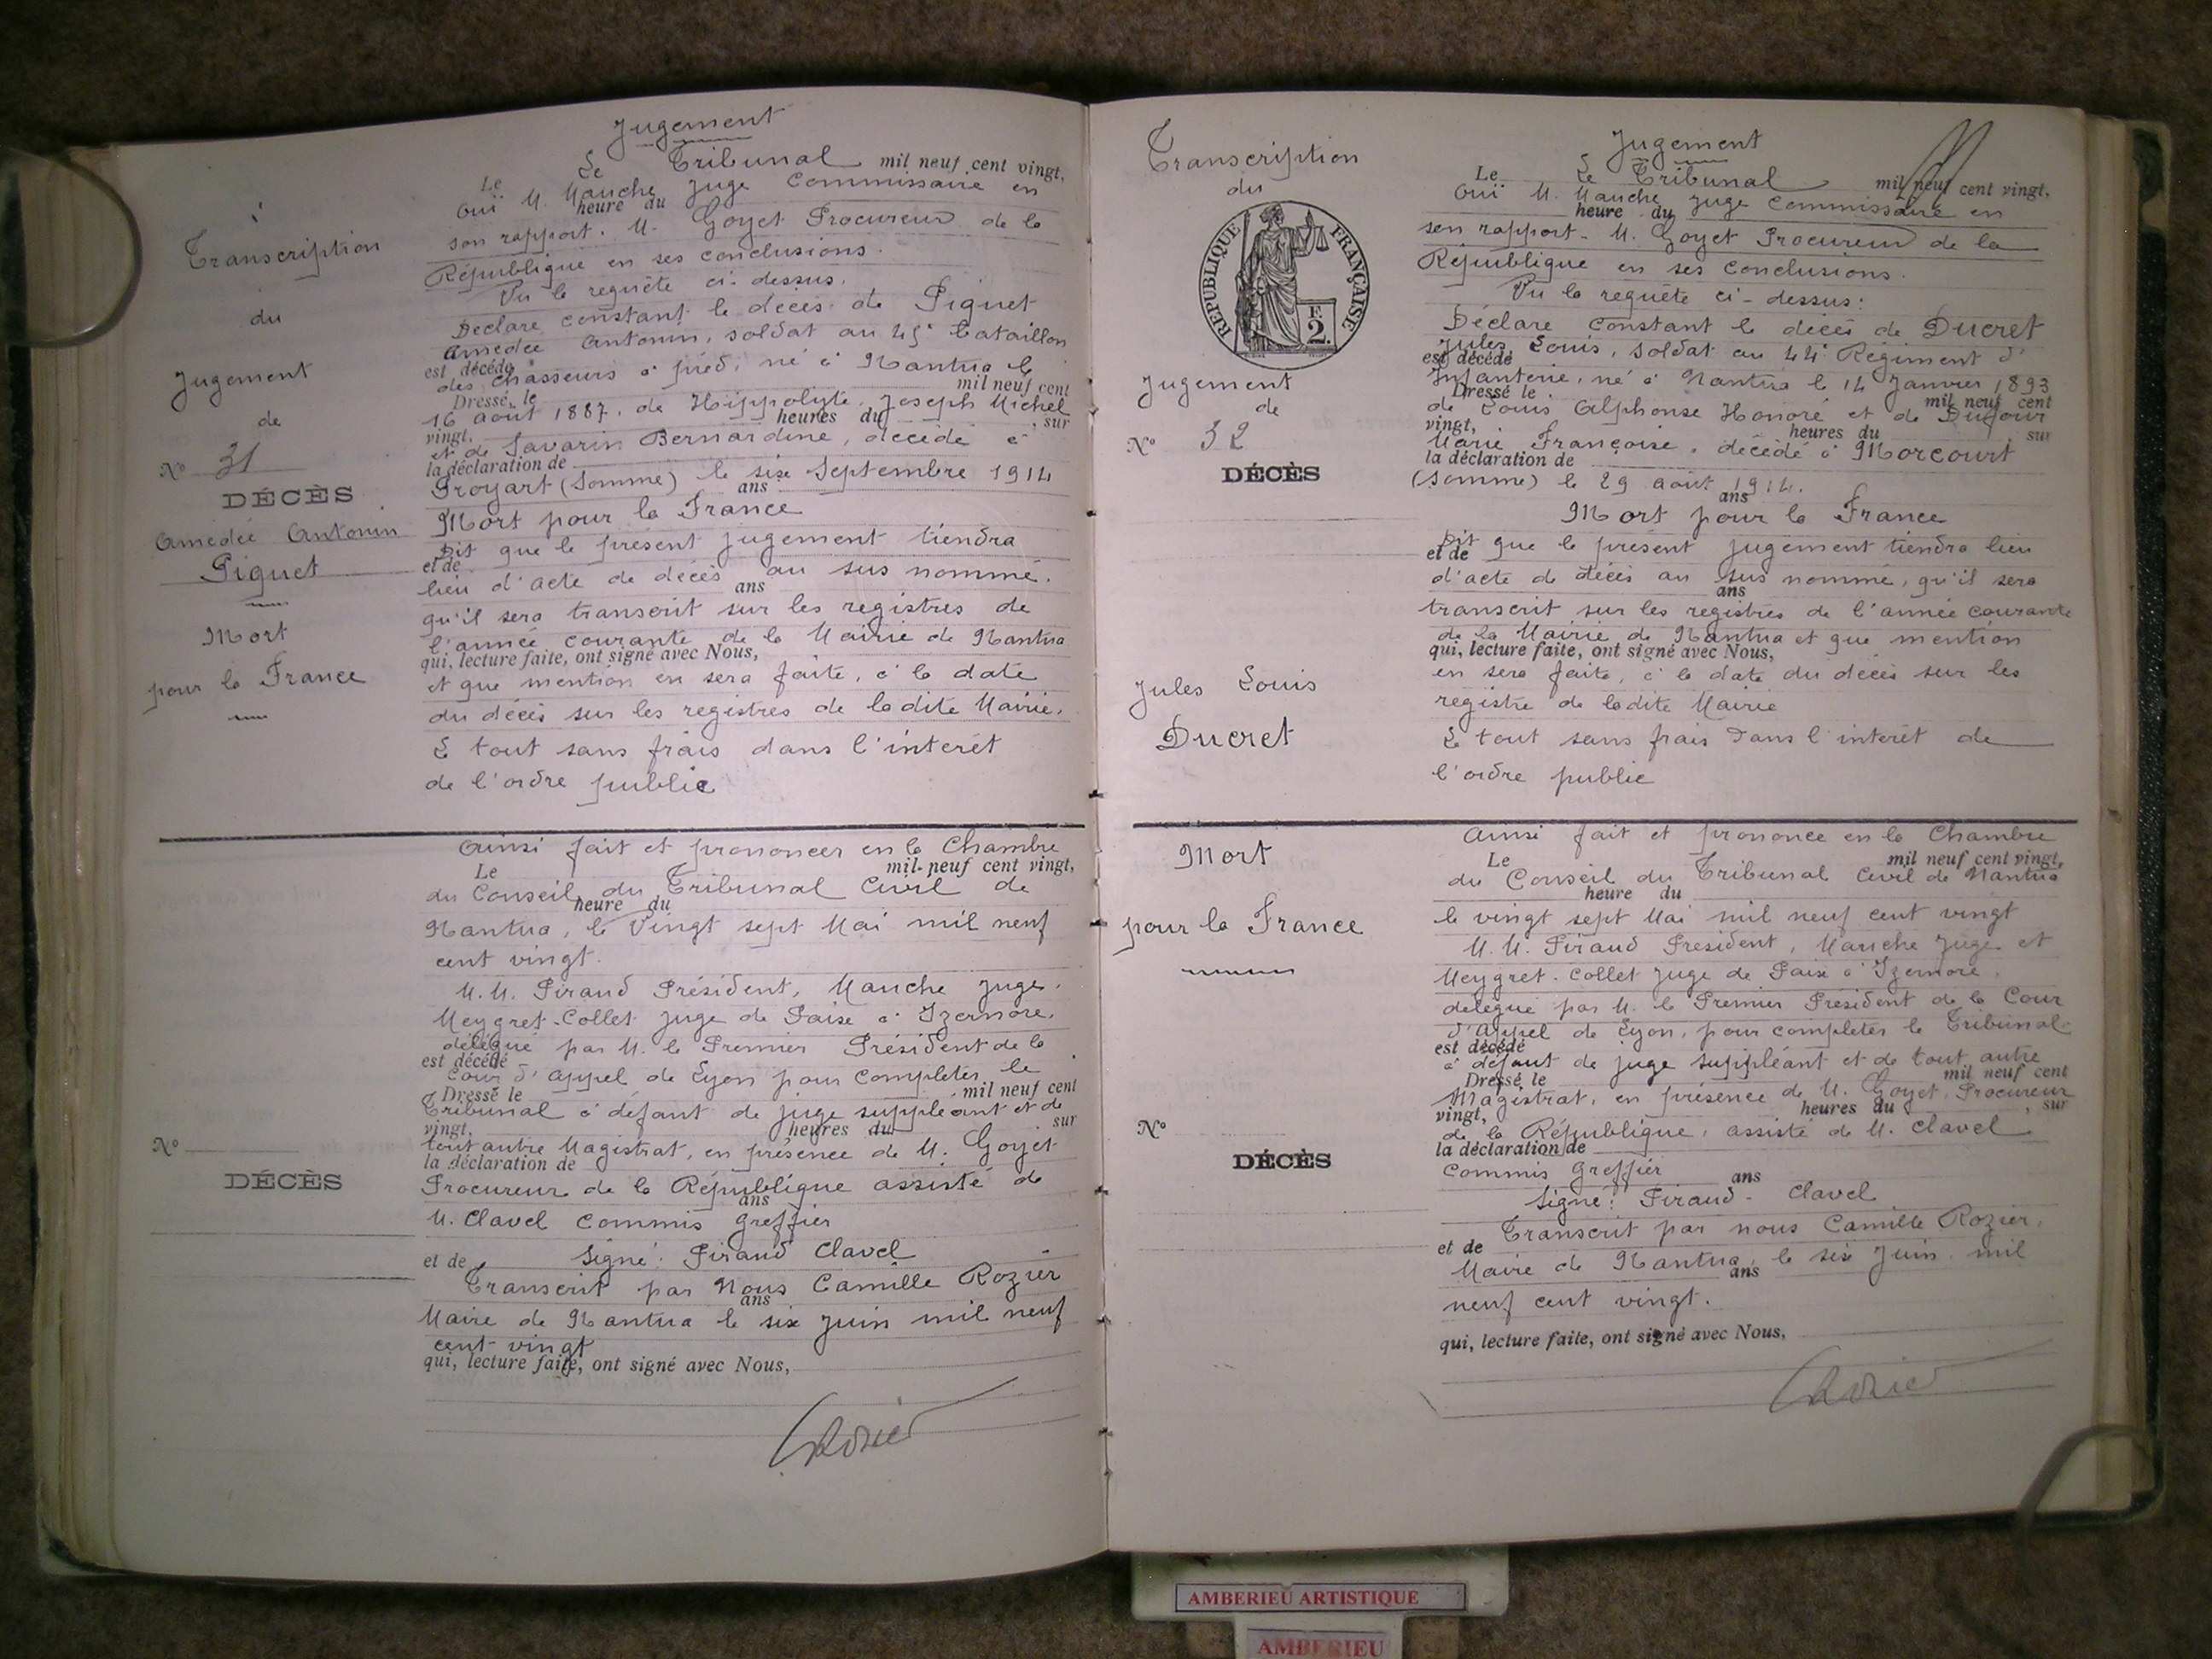 Transcription
du
Jugement
de
N° 31
DÉCÈS
Amédée Antonin
Piguet
Mort
pour la France
Jugement
Le Tribunal
Le mil neuf cent vingt,
Ouï M. Mauche Juge Commissaire en
heure du
son rapport. M. Goyet Procureur de la
République en ses conclusions.
Vu la requête ci-dessus.
Déclare constant le décès de Piguet
Amédée Antonin, soldat au 45e bataillon
est décédé
des chasseurs à pied, né à Nantua le
Dressé le mil neuf cent
16 août 1887, de Hippolyte Joseph Michel
vingt, heures du , sur
et de Savarin Bernardine, décédé à
la déclaration de
Proyart (Somme) le six Septembre 1914
ans
Mort pour la France
Dit que le présent jugement tiendra
et de
lieu d'acte de décès au sus nommé.
ans
qu'il sera transcrit sur les registres de
l'année courante de la Mairie de Nantua
qui, lecture faite, ont signé avec Nous,
et que mention en sera faite, à la date
du décès sur les registres de ladite Mairie.
Le tout sans frais dans l'intérêt
de l'ordre public
N°
DÉCÈS
Ainsi fait et prononcer en la Chambre
Le mil neuf cent vingt,
du Conseil du Tribunal Civil de
heure du
Nantua, le Vingt sept Mai mil neuf
cent vingt.
M.M. Piraud Président, Mauche Juge.
Meygret-Collet Juge de Paix à Izernore,
délégué par M. le Premier Président de la
est décédé
Cour d'Appel de Lyon pour compléter le
Dressé le mil neuf cent
Tribunal à défaut de juge suppléant et de
vingt, heures du sur
tout autre Magistrat, en présence de M. Goyet
la déclaration de
Procureur de la République assisté de
ans
M. Clavel Commis Greffier
Signé: Piraud Clavel
et de
Transcrit par Nous Camille Rozier
ans
Maire de Nantua le six Juin mil neuf
cent vingt
qui, lecture faite, ont signé avec Nous,
Transcription
du
RÉPUBLIQUE FRANÇAISE
F.
2.
Jugement
de
N° 32
DÉCÈS
Jules Louis
Ducret
Mort
pour la France
Jugement
Le Tribunal
Le mil neuf cent vingt,
Ouï M. Mauche Juge Commissaire en
heure du
son rapport - M. Goyet Procureur de la
République en ses conclusions.
Vu la requête ci-dessus:
Déclare constant le décès de Ducret
Jules Louis, soldat au 44e Régiment d'
est décédé
Infanterie, né à Nantua le 14 Janvier 1893
Dressé le mil neuf cent
de Louis Alphonse Honoré et de Dufour
vingt, heures du , sur
Marie Françoise, décédé à Morcourt
la déclaration de
(Somme) le 29 août 1914.
ans
Mort pour la France
Dit que le présent jugement tiendra lieu
et de
d'acte de décès au sus nommé, qu'il sera
ans
transcrit sur les registres de l'année courante
de la Mairie de Nantua et que mention
qui, lecture faite, ont signé avec Nous,
en sera faite, à la date du décès sur les
registre de ladite Mairie
Le tout sans frais dans l'intérêt de
l'ordre public
N°
DÉCÈS
Ainsi fait et prononcé en la Chambre
Le mil neuf cent vingt,
du Conseil du Tribunal Civil de Nantua
heure du
le vingt sept Mai mil neuf cent vingt
M.M. Piraud Président, Mauche Juge et
Meygret-Collet Juge de Paix à Izernore,
délégué par M. le Premier Président de la Cour
d'Appel de Lyon, pour compléter le Tribunal
est décédé
à défaut de juge suppléant et de tout autre
Dressé le mil neuf cent
Magistrat, en présence de M. Goyet, Procureur
vingt, heures du , sur
de la République, assisté de M. Clavel
la déclaration de
Commis Greffier
ans
Signé: Piraud - Clavel
Transcrit par nous Camille Rozier,
et de
Maire de Nantua, le six Juin mil
ans
neuf cent vingt.
qui, lecture faite, ont signé avec Nous,
AMBERIEU ARTISTIQUE
AMBERIEU